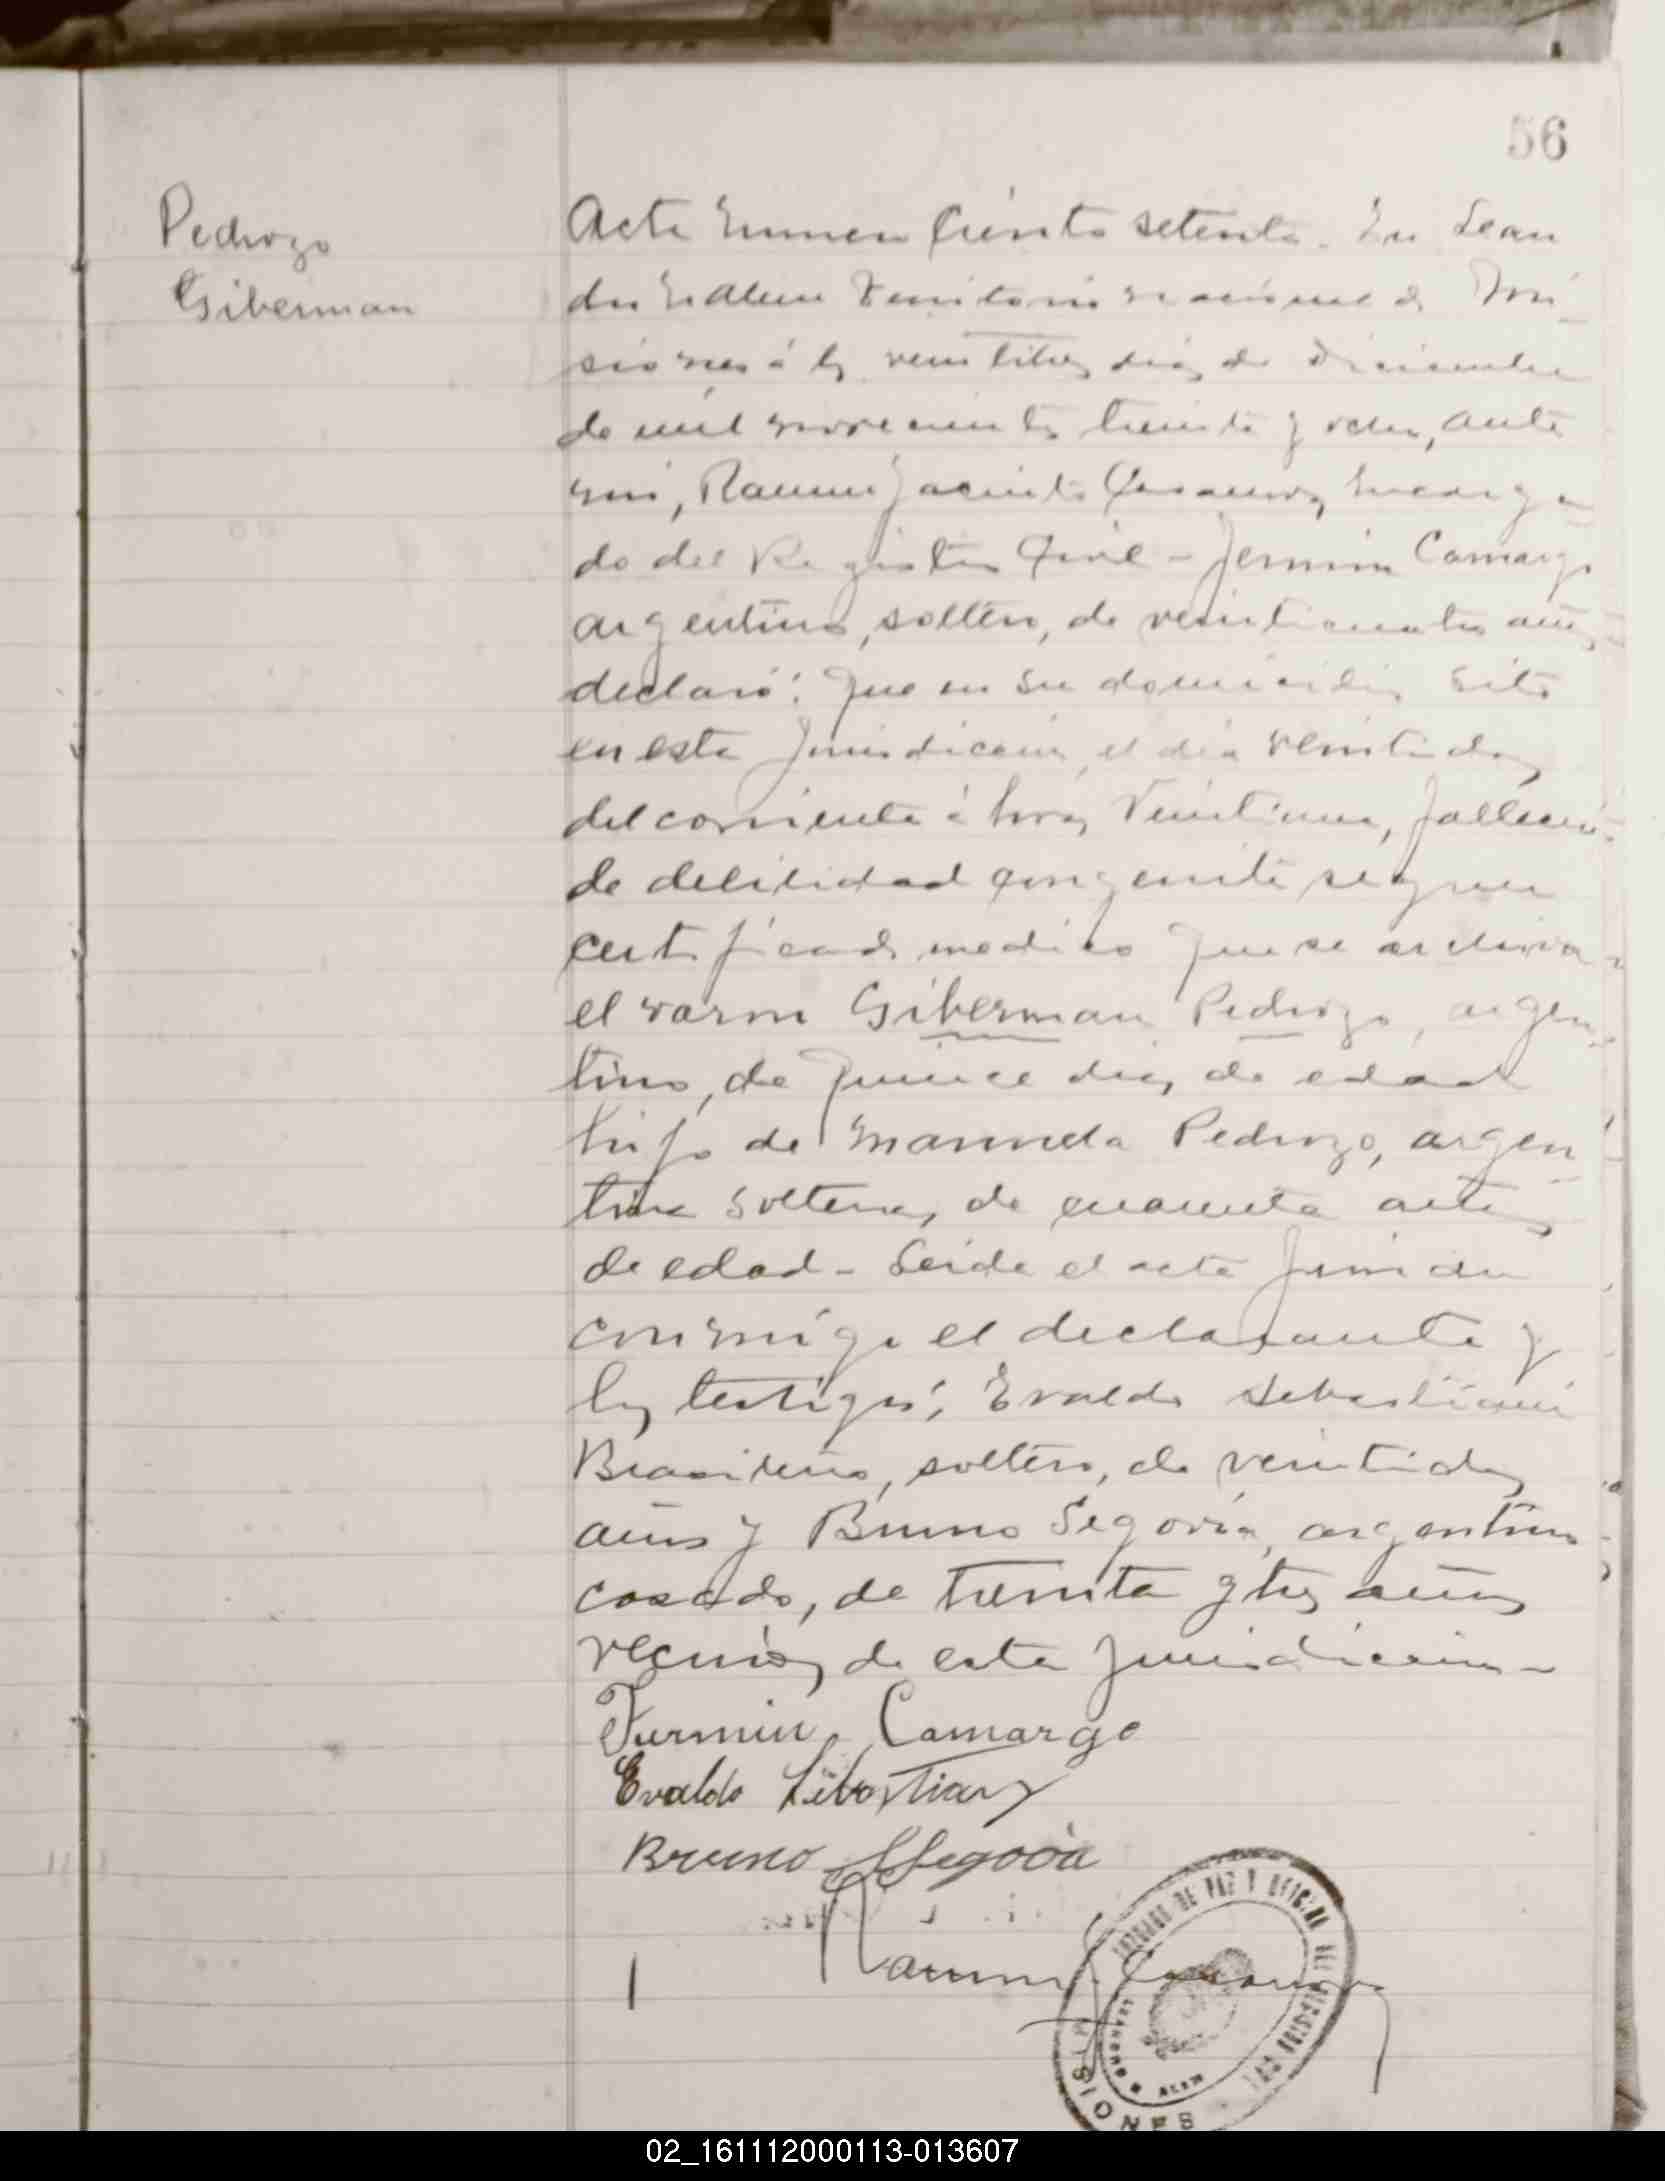 56
Pedrozo
Giberman
Acta Numero Ciento setenta. En Lean
dro N Alem Territorio nacional de Mi
siones á los veintitres dias de Diciembre
de mil novecientos treinta y ocho, ante
mi, Ramon Jacinto Encarga
do del Registro Civil - Fermin Camargo
argentino, soltero, de veinticuatro años
declaró: Que en su domicilio sito
en esta Jurisdiccion, el dia veintidos
del corriente á horas veintiuna, falleció
de debilidad congenita segun
certificado medico que se archiva
el varon Giberman Pedrozo, argen
tino, de quince dias de edad
hijo de Manuela Pedrozo, argen
tina soltera, de cuarenta años
de edad - Leida el acta firmaron
conmigo el declarante y
los testigos; Evaldo Sebastiani
Brasileño, soltero, de veintidos
años y Bruno Segovia, argentino
casado, de treinta y tres años
vecinos de esta Jurisdiccion -
Furmin Camargo
Evaldo Sebastiany
Bruno Segovia
Ramon J.
JUZGADO DE PAZ Y OFICINA DEL REGISTRO CIVIL
LEANDRO N ALEM
MISIONES
02_161112000113-013607